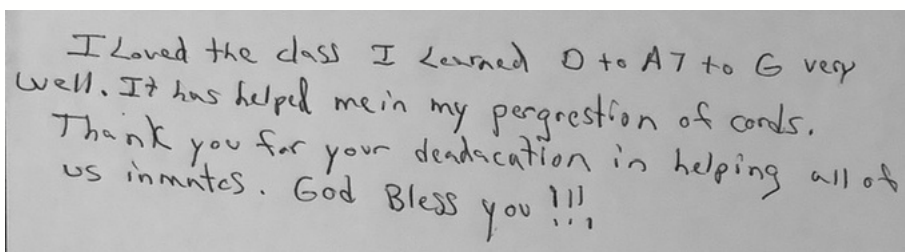 I Loved the class I Learned D to A7 to G very
well. It has helped me in my pergrestion of cords.
Thank you for your deadacation in helping all of
us inmates. God Bless you!!!